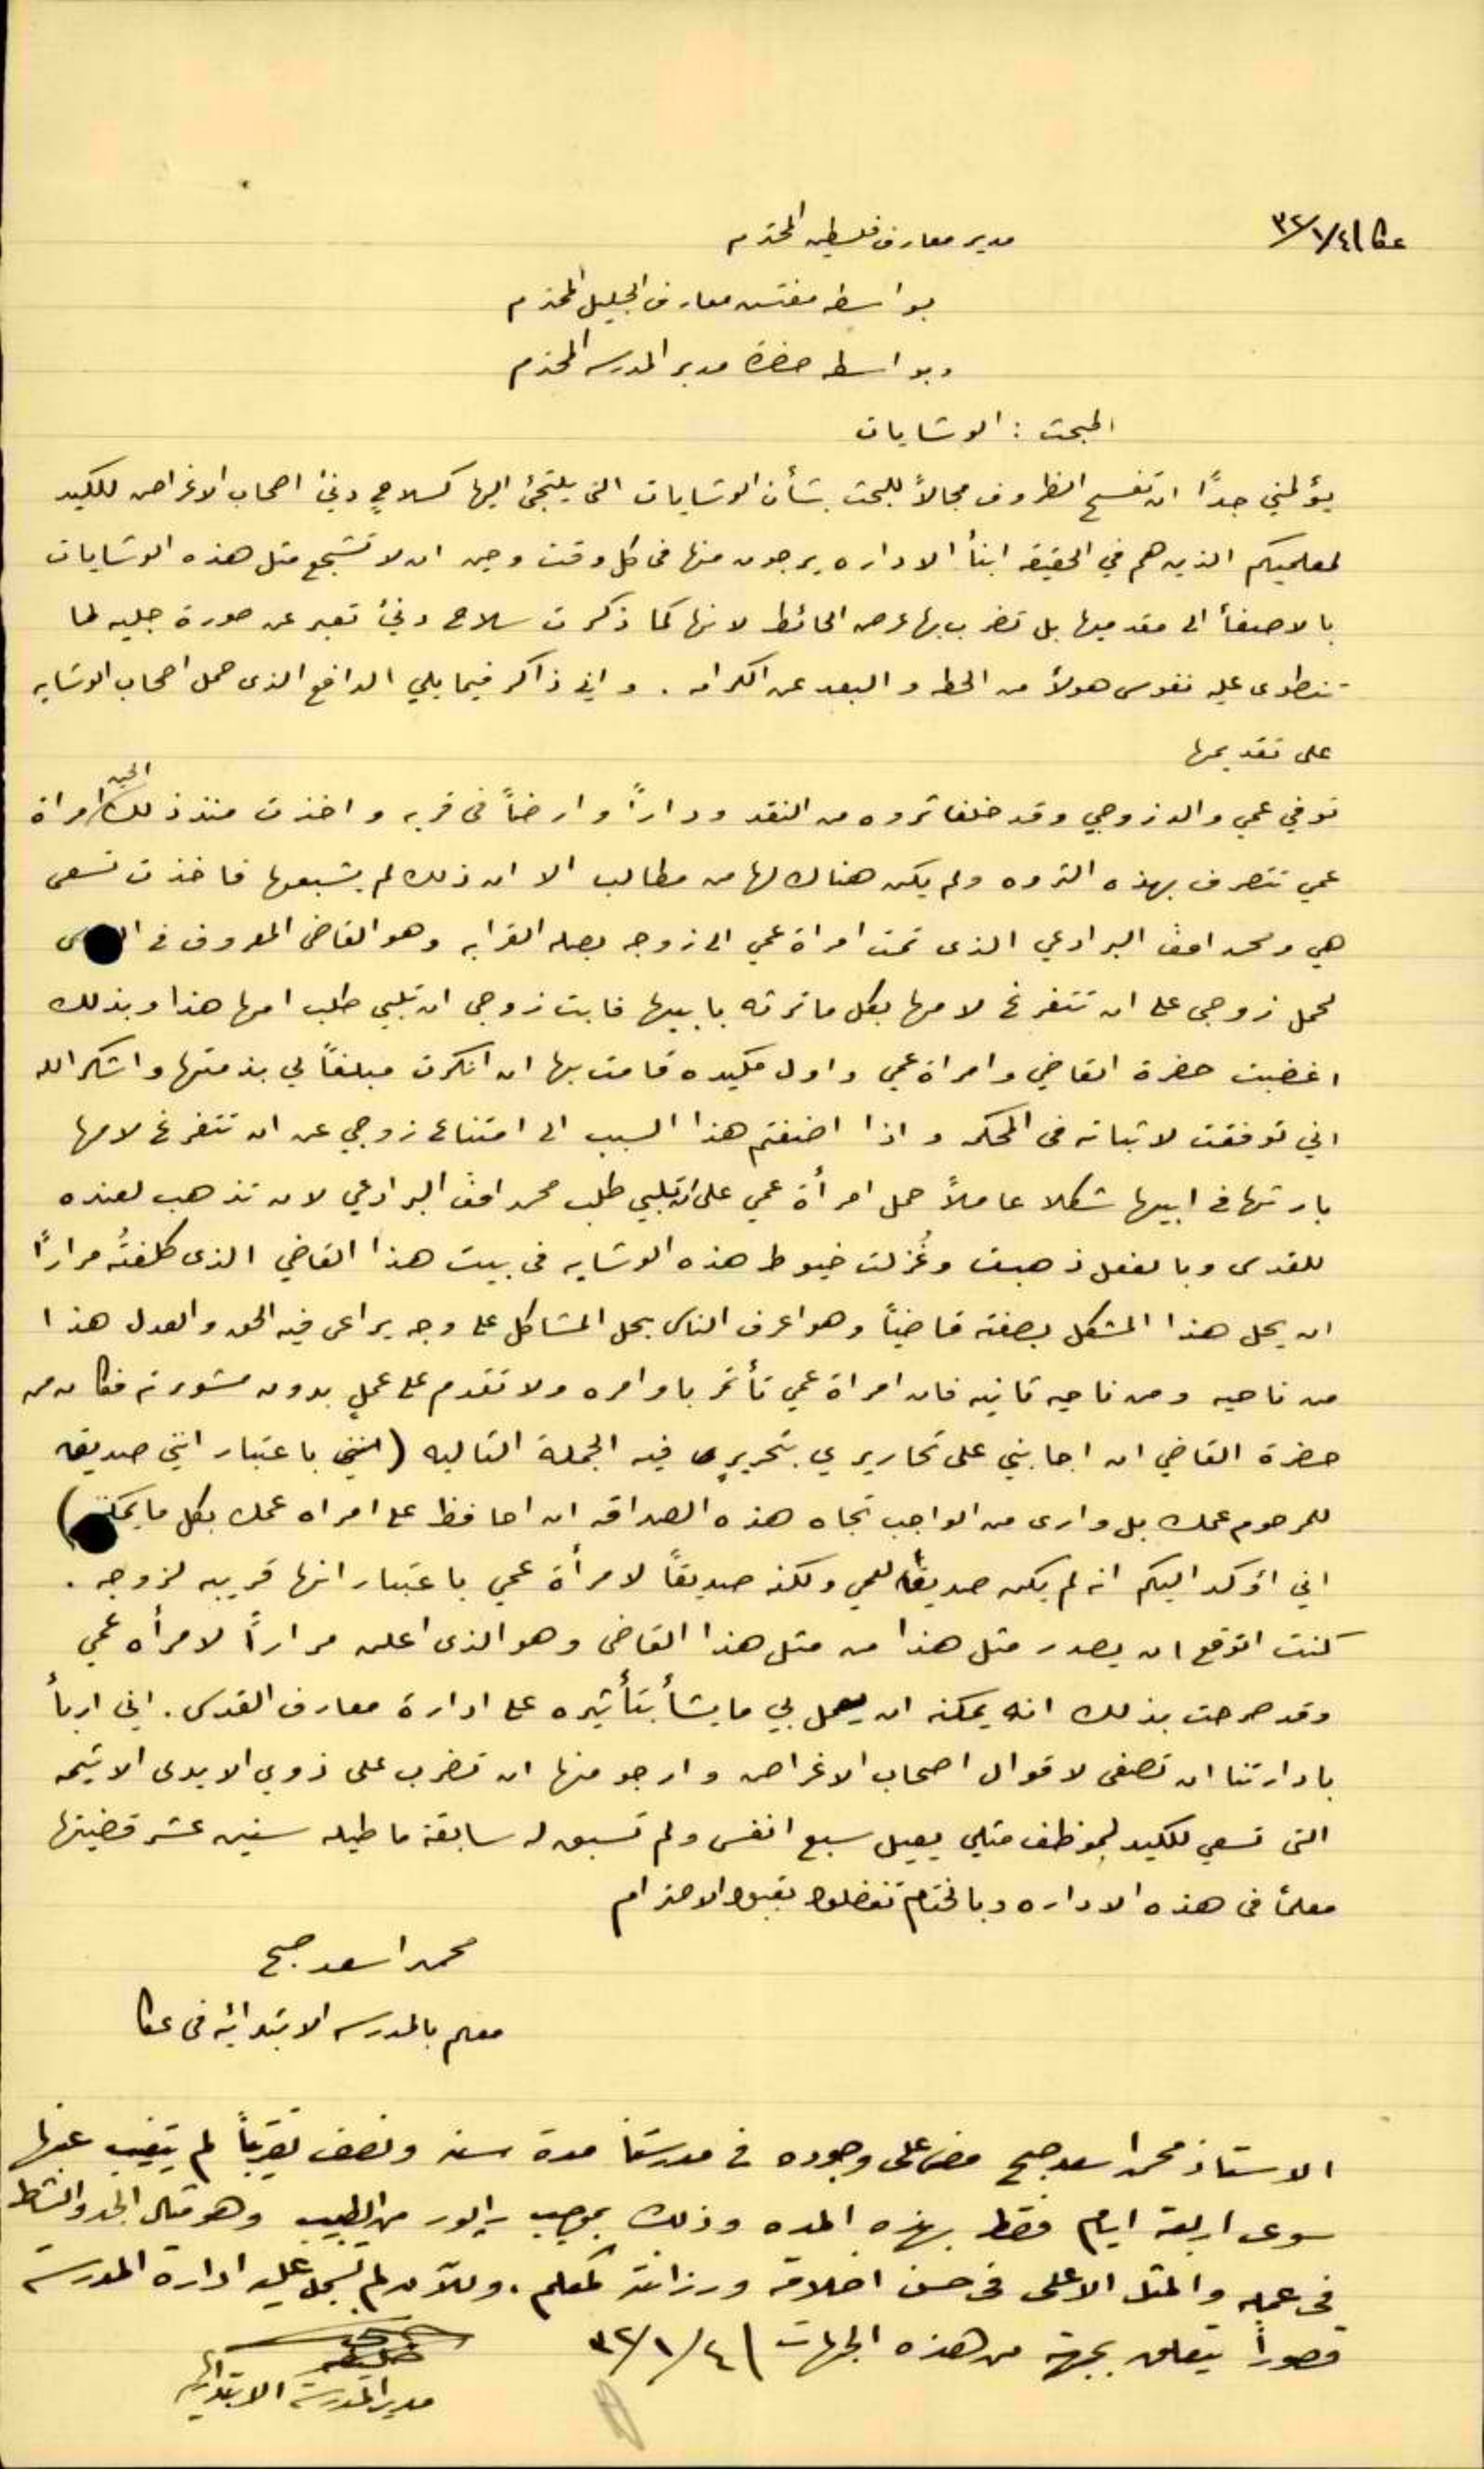 عكا ٣٢/١/٤
مدير معارف فلسطين المحترم
بواسطه مفتش معارف الجليل المحترم
وبواسطه حضرة مدير المدرسه المحترم
المبحث : الوشايات
يؤلمني جداً ان تفسح الظروف مجالاً للبحث بشأن الوشايات التى يلتجئ اليها كسلاح دنئ اصحاب الاغراض للكيد
لمعلميكم الذين هم في الحقيقه ابنأ الاداره يرجون منها فى كل وقت وحين ان لا تشجع مثل هذه الوشايات
بالاصغأ الى مقدميها بل تضرب بها عرض الحائط لانها كما ذكرت سلاح دنئ تعبر عن صورة جليه لما
تنطوى عليه نفوس هولأ من الحطه والبعد عن الكرامه . واني ذاكر فيما يلي الدافع الذى حمل اصحاب الوشايه
على تقديمها
توفي عمي والد زوجي وقد خلف ثروه من النقد وداراً وارضاً فى قريه واخذت منذ ذلك الحين امراة
عمي تتصرف بهذه الثروه ولم يكن هناك لها من مطالب الا ان ذلك لم يشبعها فاخذت تسعى
هي ومحمد افندي البرادعي الذى تمت امراة عمي الى زوجه بصله القرابه وهو القاضى المعروف فى
لحمل زوجى على ان تتفرغ لامها بكل ما ترثه بابيها فابت زوجى ان تلبي طلب امها هذا وبذلك
اغضبت حضرة القاضي وامراة عمي واول مكيده قامت بها ان انكرت مبلغاً لي بذمتها واشكر الله
اني توفقت لاثباته فى المحكمه واذا اضفتم هذا السبب الى امتناع زوجي عن ان تتفرغ لامها
بارثها فى ابيها شكلا عاملاً حمل امرأة عمي على ان تلبي طلب محمد افندي البرادعي لان تذهب لعنده
للقدس وبالفعل ذهبت وغُزلت خيوط هذه الوشايه فى بيت هذا القاضي الذى كلفتُه مراراً
ان يحل هذا المشكل بصفته قاضياً وهو اعرف الناس بحل المشاكل على وجه يراعى فيه الحق والعدل هذا
من ناحيه ومن ناحيه ثانيه فان امراة عمي تأتمر باوامره ولا تقدم على عمل بدون مشورته فكان من
حضرة القاضي ان اجابني على تحاريري بتحرير فيه الجملة التاليه ( باعتبار انني صديق
للمرحوم عمك بل وارى من الواجب تجاه هذه الصداقه ان احافظ على امراه عمك بكل ما يمكن )
اني اؤكد اليكم انه لم يكن صديقاً لعمي ولكنه صديقاً لامرأة عمي باعتبار انها قريبه لزوجه .
كنت اتوقع ان يصدر مثل هذا من مثل هذا القاضى وهو الذى اعلن مراراً لامرأه عمي
وقد صرحت بذلك انه يمكنه ان يعمل بي ما يشأ بتأثيره على ادارة معارف القدس . اني اربأ
بادارتنا ان تصغى لاقوال اصحاب الاغراض وارجو منها ان تضرب على ذوي الايدى الاثيمه
التى تسعي للكيد لموظف مثلي يعيل سبع انفس ولم تسبق له سابقة ما طيله سنين عشر قضيتها
معلماً فى هذه الاداره وبالختام تفضلوا بقبول الاحترام
محمد اسعد صبح
معلم بالمدرسه الابتدائيه فى عكا
الاستاذ محمد اسعد صبح مضى على وجوده في مدرستنا مدة سنه ونصف تقريباً لم يتغيب عنها
سوى اربعة ايام فقط بهذه المده وذلك بموجب رابور من الطبيب وهو مثال الجد والنشاط
فى عمله والمثل الاعلى فى حسن اخلاقه ورزانته كمعلم . وللآن لم تسجل عليه ادارة المدرسة
قصوراً يتعلق بجهة من هذه الجهات ٣٢/١/٤
مدير المدرسة الابتدائيه